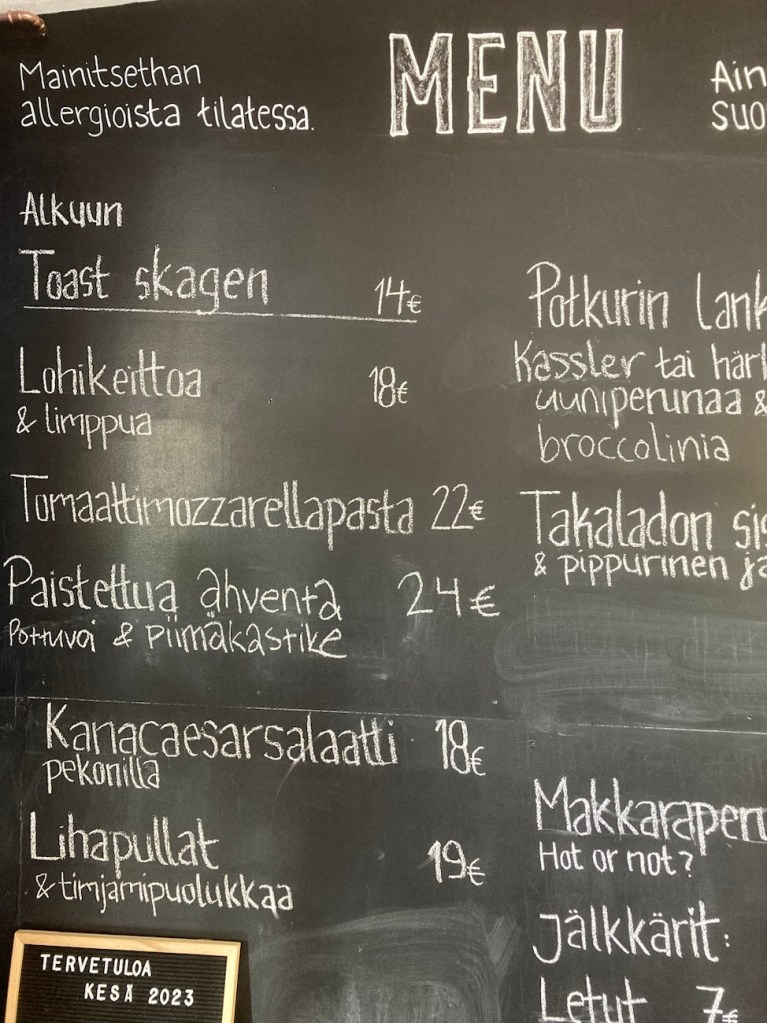 Mainitsethan
allergioista tilatessa.
MENU
Alkuun
Toast skagen 14€
Lohikeittoa 18€
& limppua
Tomaattimozzarellapasta 22€
Paistettua ahventa 24€
Pottuvoi & piimäkastike
Kanacaesarsalaatti 18€
pekonilla
Lihapullat 19€
& timjamipuolukkaa
TERVETULOA
KESÄ 2023
Ain
suo
Potkurin lank
Kassler tai härk
uuniperunaa &
broccolinia
Takaladon sis
& pippurinen ja
Makkaraperu
Hot or not?
Jälkkärit:
Letut 7€